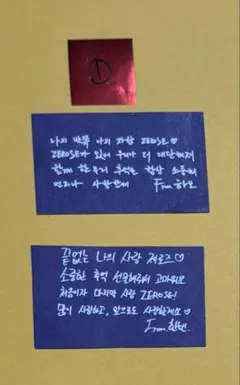 나의 반쪽 나의 자랑 ZEROSE♡
ZEROSE가 있어 우리가 더 대단해져
함께 한 무거 추억은 항상 소중히
언제나 사랑한다 From.하오
끝없는 나의 사랑 제로즈♡
소중한 추억 선물해줘서 고마워요
처음이자 마지막 사랑 ZEROSE!
많이 사랑하고, 앞으로도 사랑할게요♡
From.한빈.